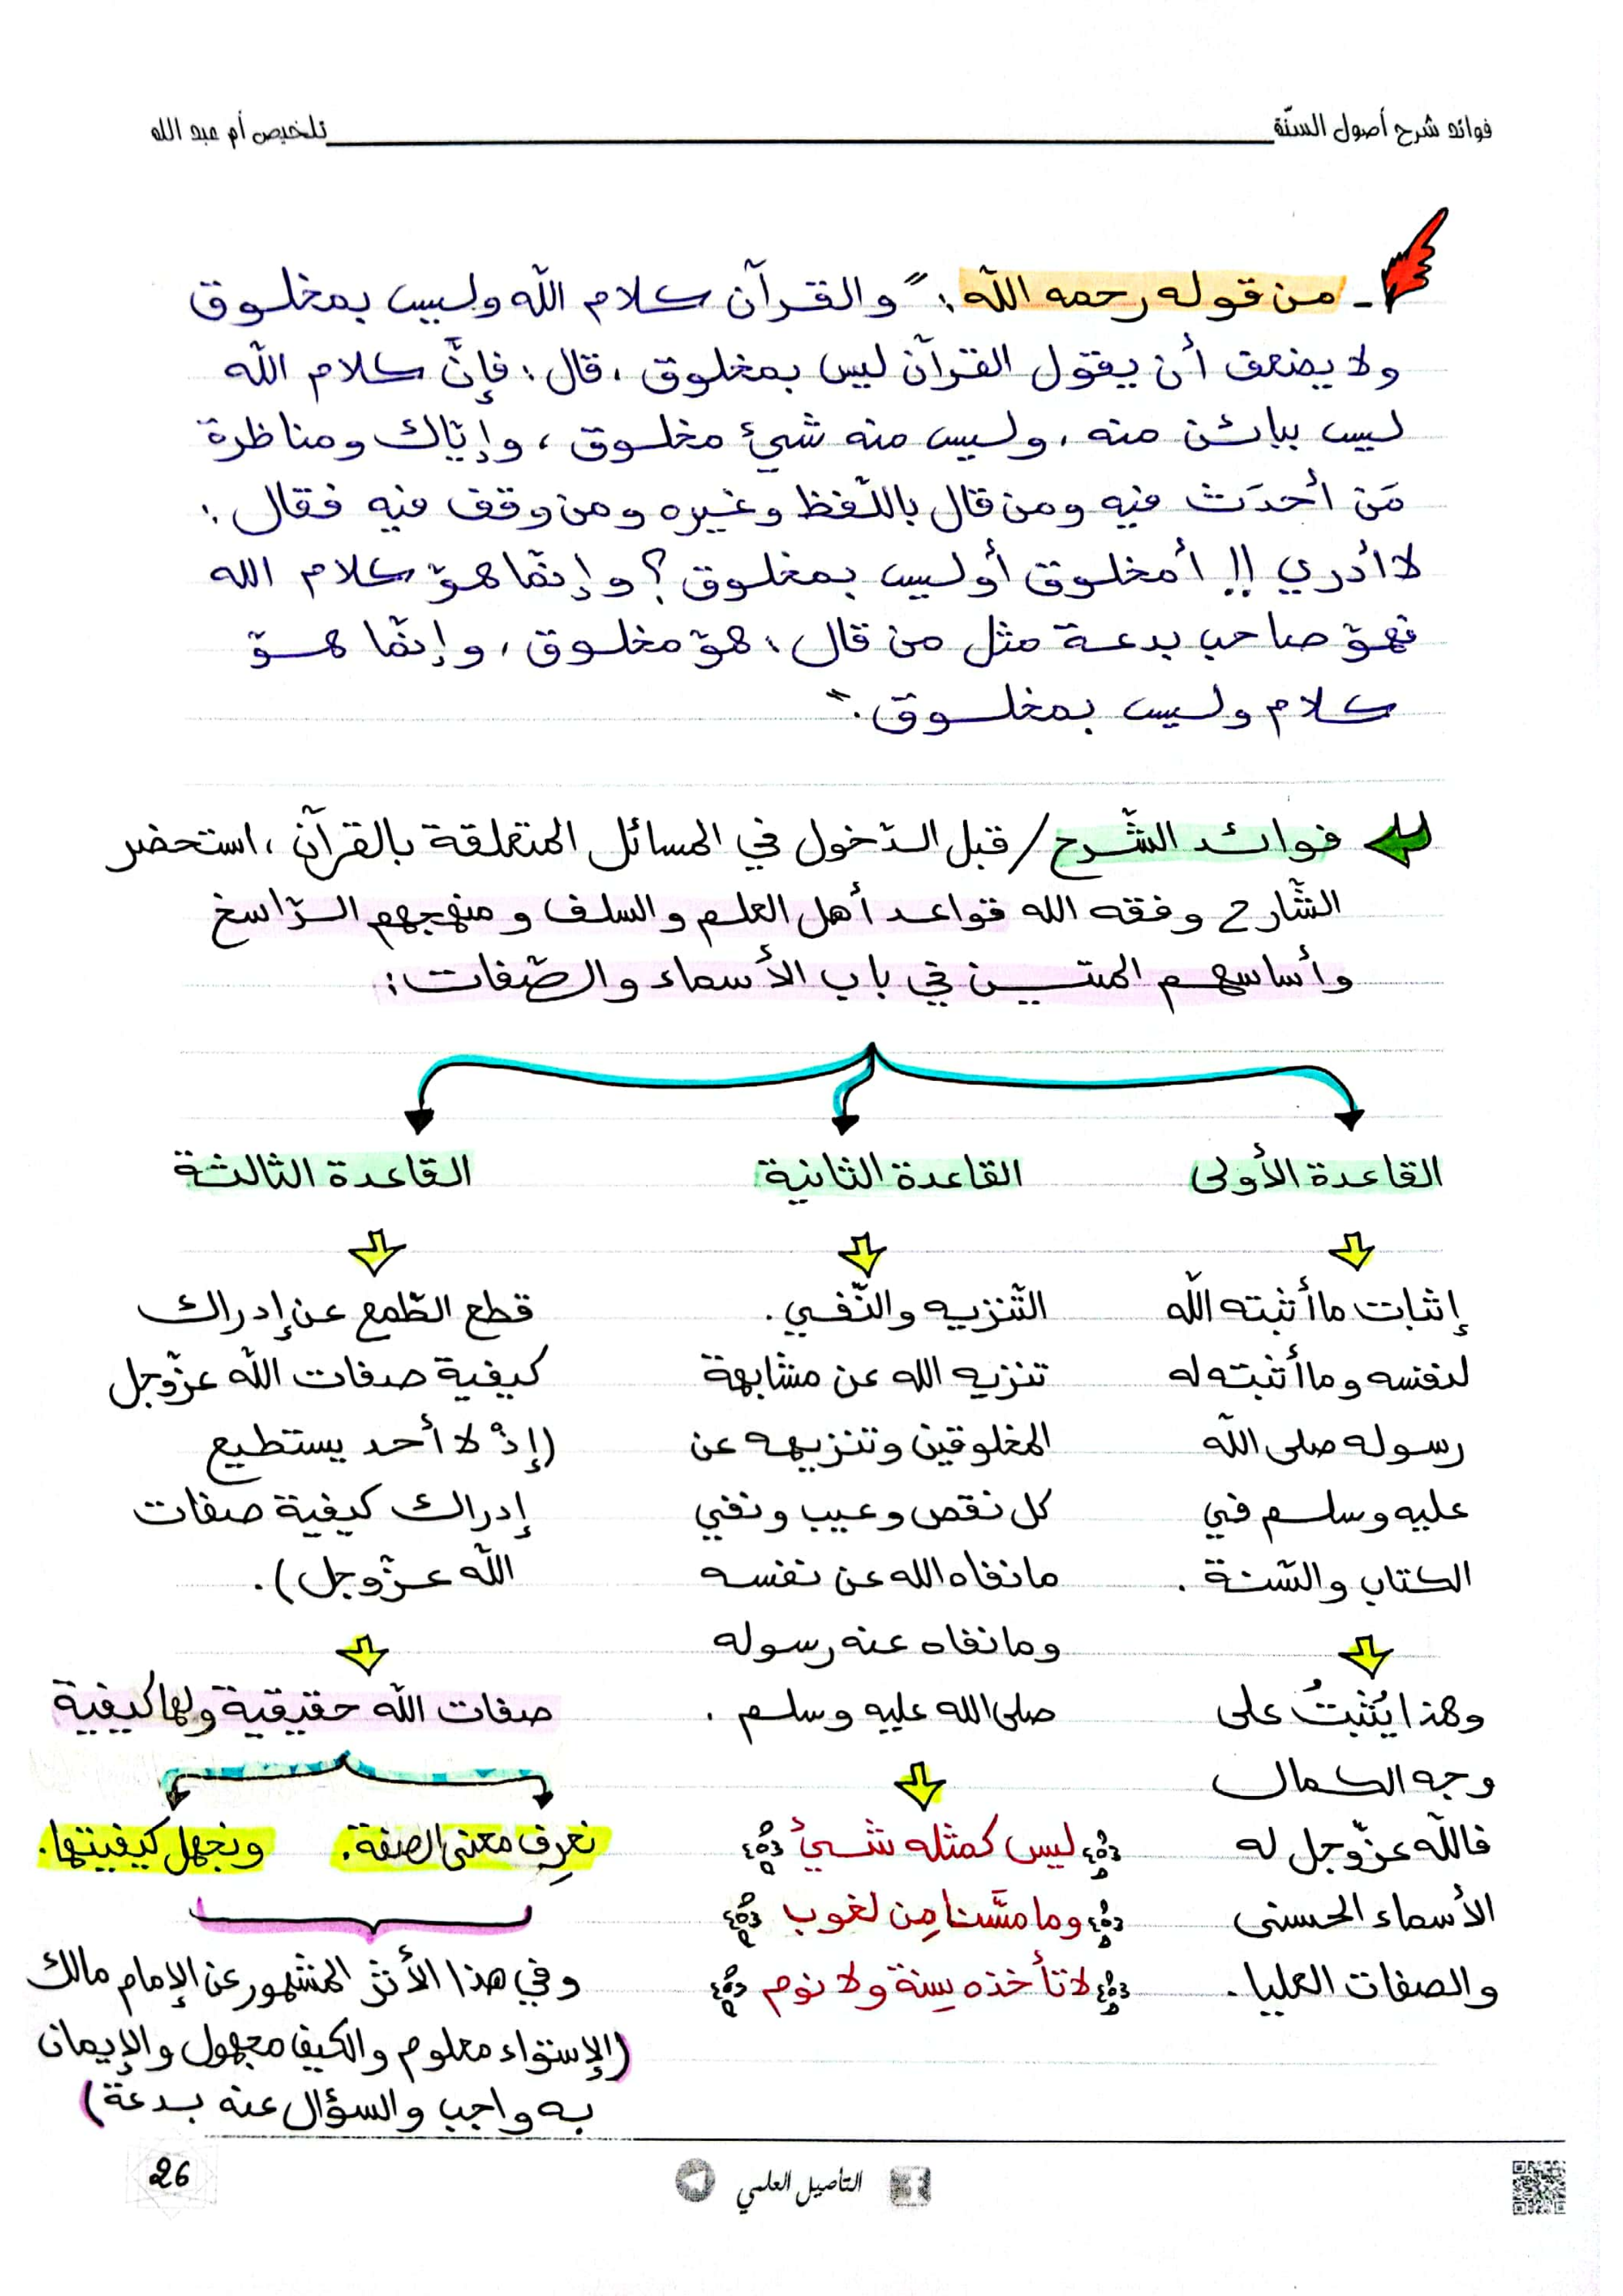 فوائد شرح أصول السنّة
تلخيص أم عبد الله
- من قوله رحمه الله : " والقرآن كلام الله وليس بمخلوق
ولا يضعف أن يقول القرآن ليس بمخلوق ، قال : فإنَّ كلام الله
ليس ببائن منه ، وليس منه شيئ مخلوق ، وإيّاك ومناظرة
مَن أحدَث فيه ومن قال باللّفظ وغيره ومن وقف فيه فقال :
لا أدري !! أمخلوق أو ليس بمخلوق ؟ وإنّما هوّ كلام الله
فهوّ صاحب بدعة مثل من قال : هوّ مخلوق ، وإنّما هوّ
كلام وليس بمخلوق . "
فوائد الشّرح / قبل الدّخول في المسائل المتعلقة بالقرآن ، استحضر
الشّارح وفقه الله قواعد أهل العلم والسلف و منهجهم الرّاسخ
وأساسهم المتين في باب الأسماء والصّفات :
القاعدة الأولى
إثبات ما أثبته الله
لنفسه وما أثبته له
رسوله صلى الله
عليه وسلم في
الكتاب والسّنة .
وهذا يُثبتُ على
وجه الكمال
فالله عزّوجل له
الأسماء الحسنى
والصفات العليا .
القاعدة الثانية
التّنزيه والنّفي .
تنزيه الله عن مشابهة
المخلوقين وتنزيهه عن
كل نقص وعيب ونفي
ما نفاه الله عن نفسه
وما نفاه عنه رسوله
صلى الله عليه وسلم .
﴿ ليس كمثله شيئ ﴾
﴿ وما مسّنا مِن لغوب ﴾
﴿ لا تأخذه سِنة ولا نوم ﴾
القاعدة الثالثة
قطع الطّمع عن إدراك
كيفية صفات الله عزّوجل
(إذْ لا أحد يستطيع
إدراك كيفية صفات
الله عزّوجل) .
صفات الله حقيقية ولها كيفية
نعرِف معنى الصفة . ونجهل كيفيتها .
وفي هذا الأثر المشهور عن الإمام مالك
(الإستواء معلوم والكيف مجهول والإيمان
به واجب والسؤال عنه بدعة)
التأصيل العلمي
26